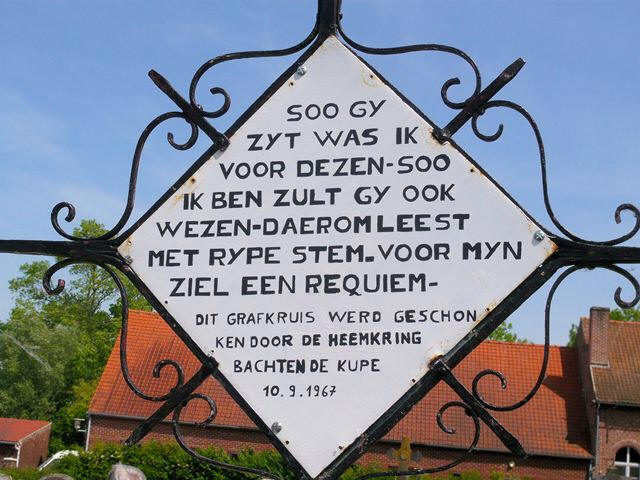 SOO GY
ZYT WAS IK
VOOR DEZEN-SOO
IK BEN ZULT GY OOK
WEZEN-DAEROM LEEST
MET RYPE STEM-VOOR MYN
ZIEL EEN REQUIEM-
DIT GRAFKRUIS WERD GESCHON
KEN DOOR DE HEEMKRING
BACHTEN DE KUPE
10.9.1967